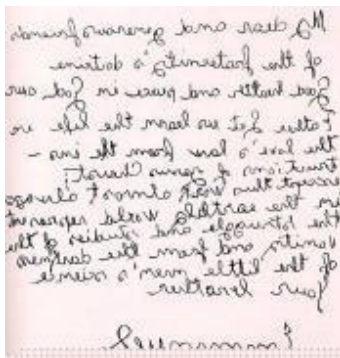 My dear and generous friends
of the fraternity's
health and peace in God our
Father Let us learn the life
the love's law from the ins-
tructions of Jesus Christ!
almost always
in the earthly world represent
the struggle and studies of the
and from the
of the little men's science
Your brother
Emmanuel